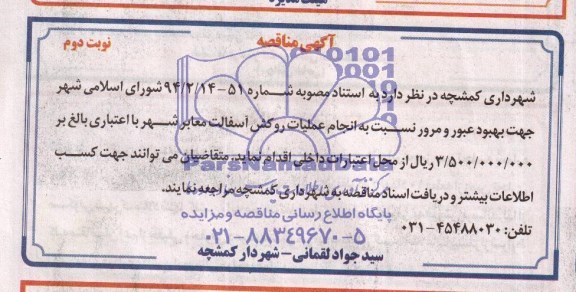 آگهی مناقصه
نوبت دوم
شهرداری کمشچه در نظر دارد به استناد مصوبه شماره ۵۱-۹۴/۲/۱۴ شورای اسلامی شهر
جهت بهبود عبور و مرور نسبت به انجام عملیات روکش آسفالت معابر شهر با اعتباری بالغ بر
۳/۵۰۰/۰۰۰/۰۰۰ ریال از محل اعتبارات داخلی اقدام نماید. متقاضیان می توانند جهت کسب
ParsNamadData
اطلاعات بیشتر و دریافت اسناد مناقصه به شهرداری کمشچه مراجعه نمایند.
پایگاه اطلاع رسانی مناقصه و مزایده
تلفن: ۴۵۴۸۸۰۳۰-۰۳۱
۰۲۱-۸۸۳۴۹۶۷۰-۵
سید جواد لقمانی- شهردار کمشچه